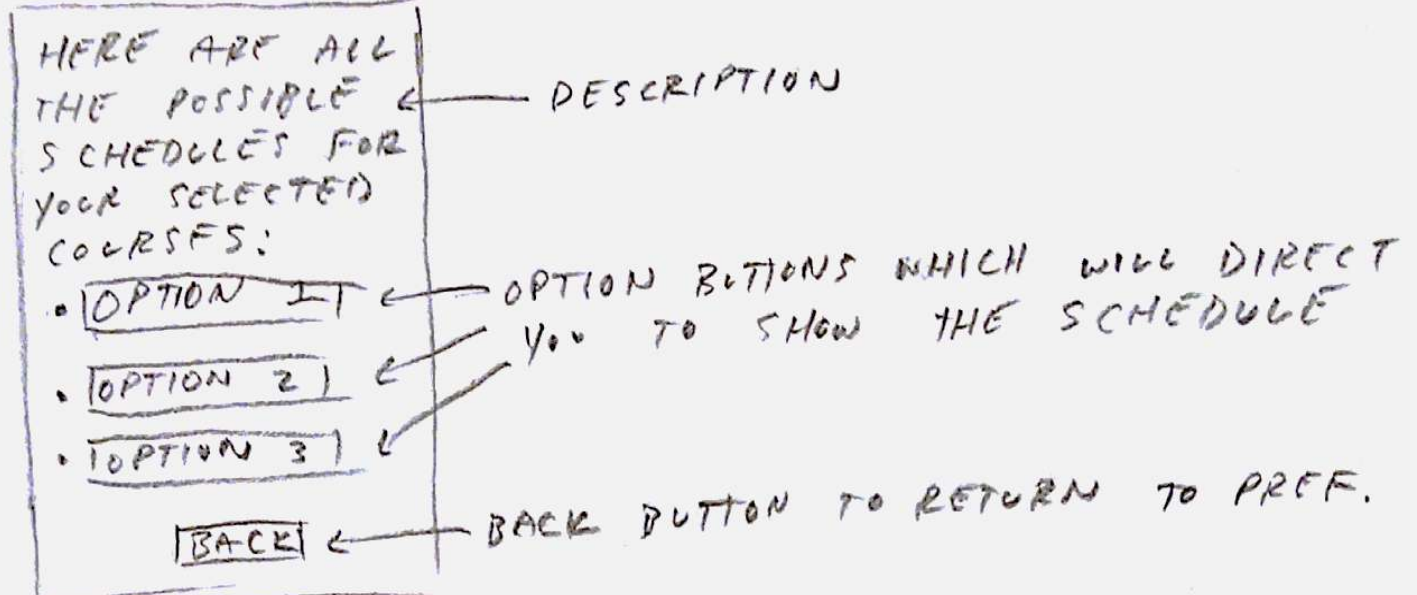 HERE ARE ALL
THE POSSIBLE
SCHEDULES FOR
YOUR SELECTED
COURSES:
DESCRIPTION
• OPTION 1
• OPTION 2
• OPTION 3
OPTION BUTTONS WHICH WILL DIRECT
YOU TO SHOW THE SCHEDULE
BACK
BACK BUTTON TO RETURN TO PREF.